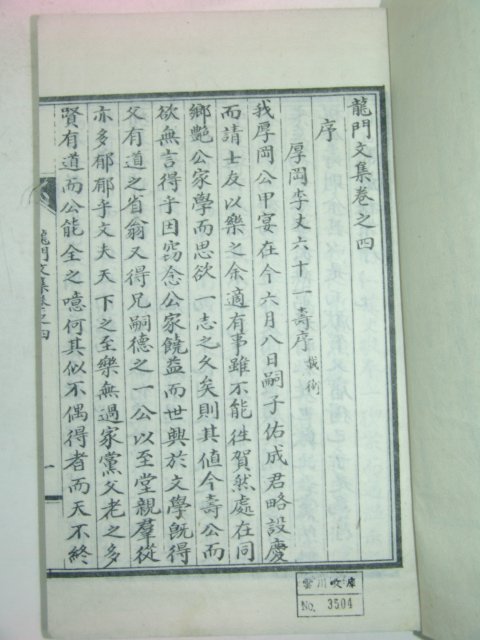 龍門文集卷之四
序
厚岡李丈六十一壽序 載衡
我厚岡公甲宴在今六月八日嗣子佑成君略設慶
而請士友以樂之余適有事雖不能徃賀然處在同
鄉艶公家學而思欲一志之久矣則其値今壽公而
欲無言得乎因窃念公家饒益而世興於文學旣得
父有道之省翁又得兄嗣德之一公以至堂親羣從
亦多郁郁乎文夫天下之至樂無過家黨父老之多
賢有道而公能全之噫何其似不偶得者而天不終
龍門文集卷之四
一
雲川文庫
No. 3504